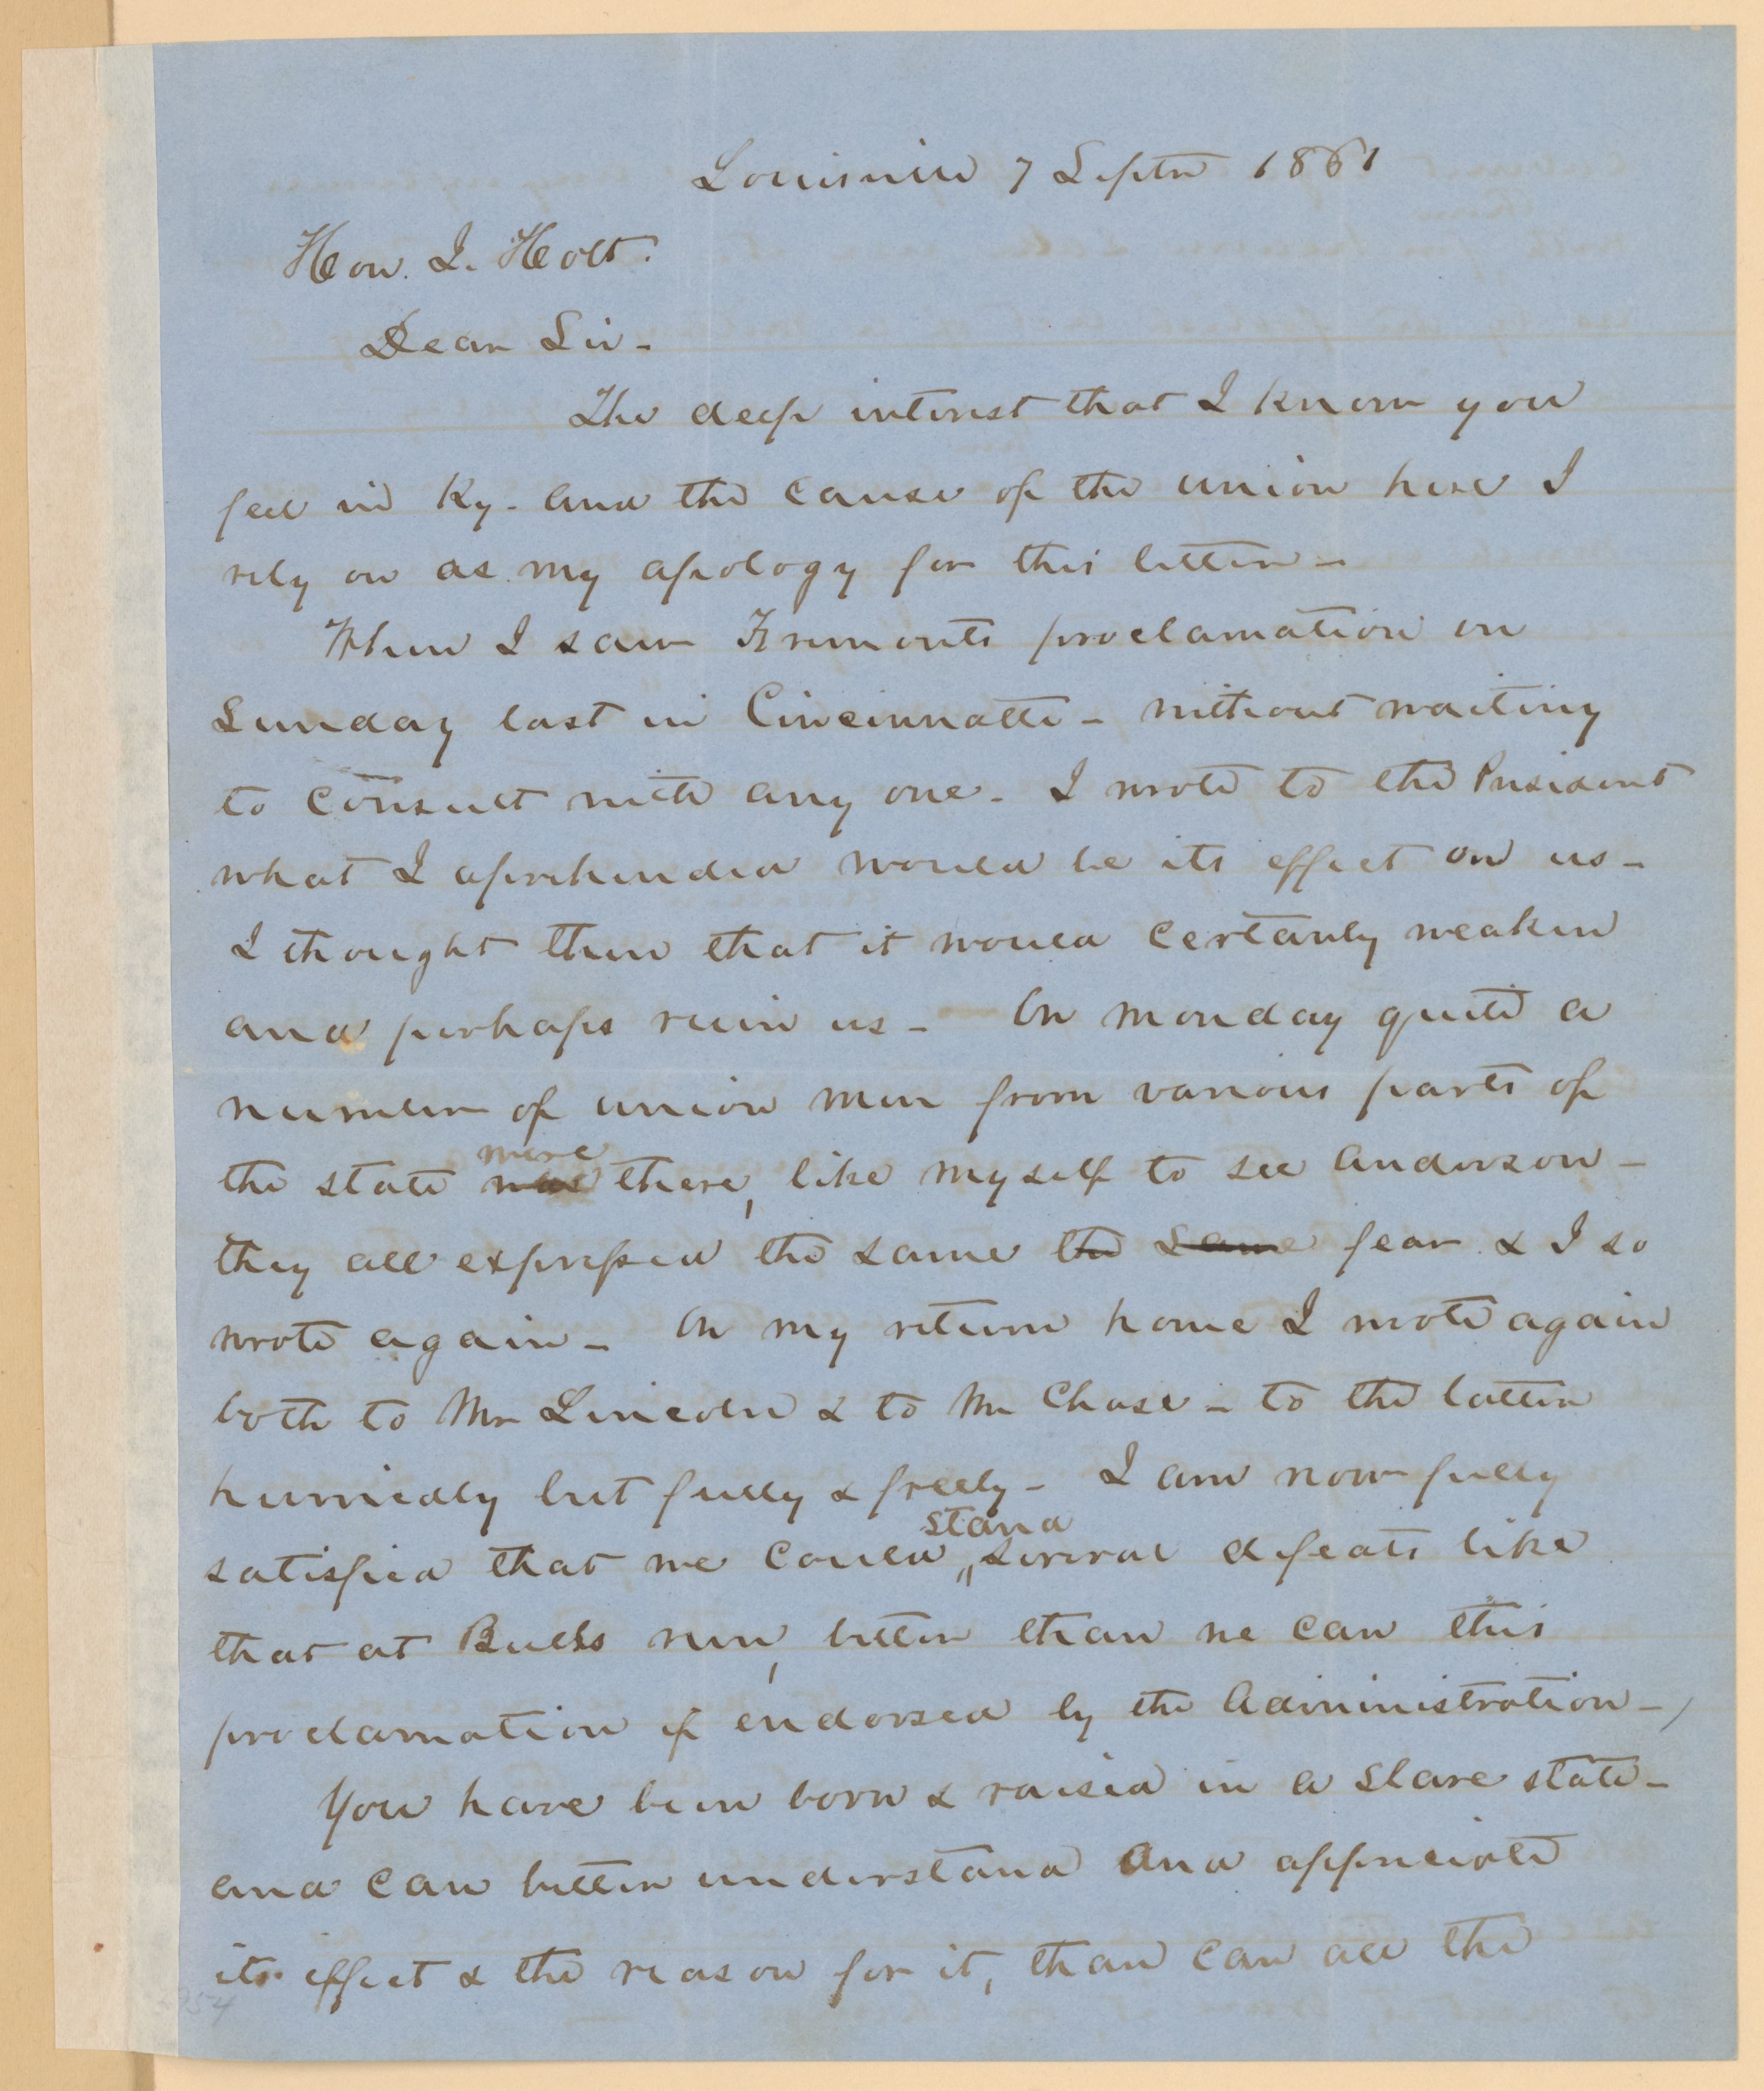 Louisville 7 Septr 1861
Hon. J. Holt.
Dear Sir -
The deep interest that I know you
feel in Ky. and the cause of the union here I
rely on as my apology for this letter -
When I saw Fremonts proclamation on
Sunday last in Cincinnatti - without waiting
to consult with any one - I wrote to the President
what I aprehended would be its effect on us -
I thought then that it would certanly weaken
and perhaps ruin us - On monday quite a
number of union men from various parts of
the state was were there, like myself to see Anderson -
they all expressed the same the same fear & I so
wrote again - On my return home I wrote again
both to Mr Lincoln & to Mr Chase - to the latter
hurriedly but fully & freely - I am now fully
satisfied that we could stand several defeats like
that at Bulls run, better than we can this
proclamation if endorsed by the Administration -
You have been born & raised in a slave state -
and can better understand and appreciate
its effect & the reason for it, than can all the